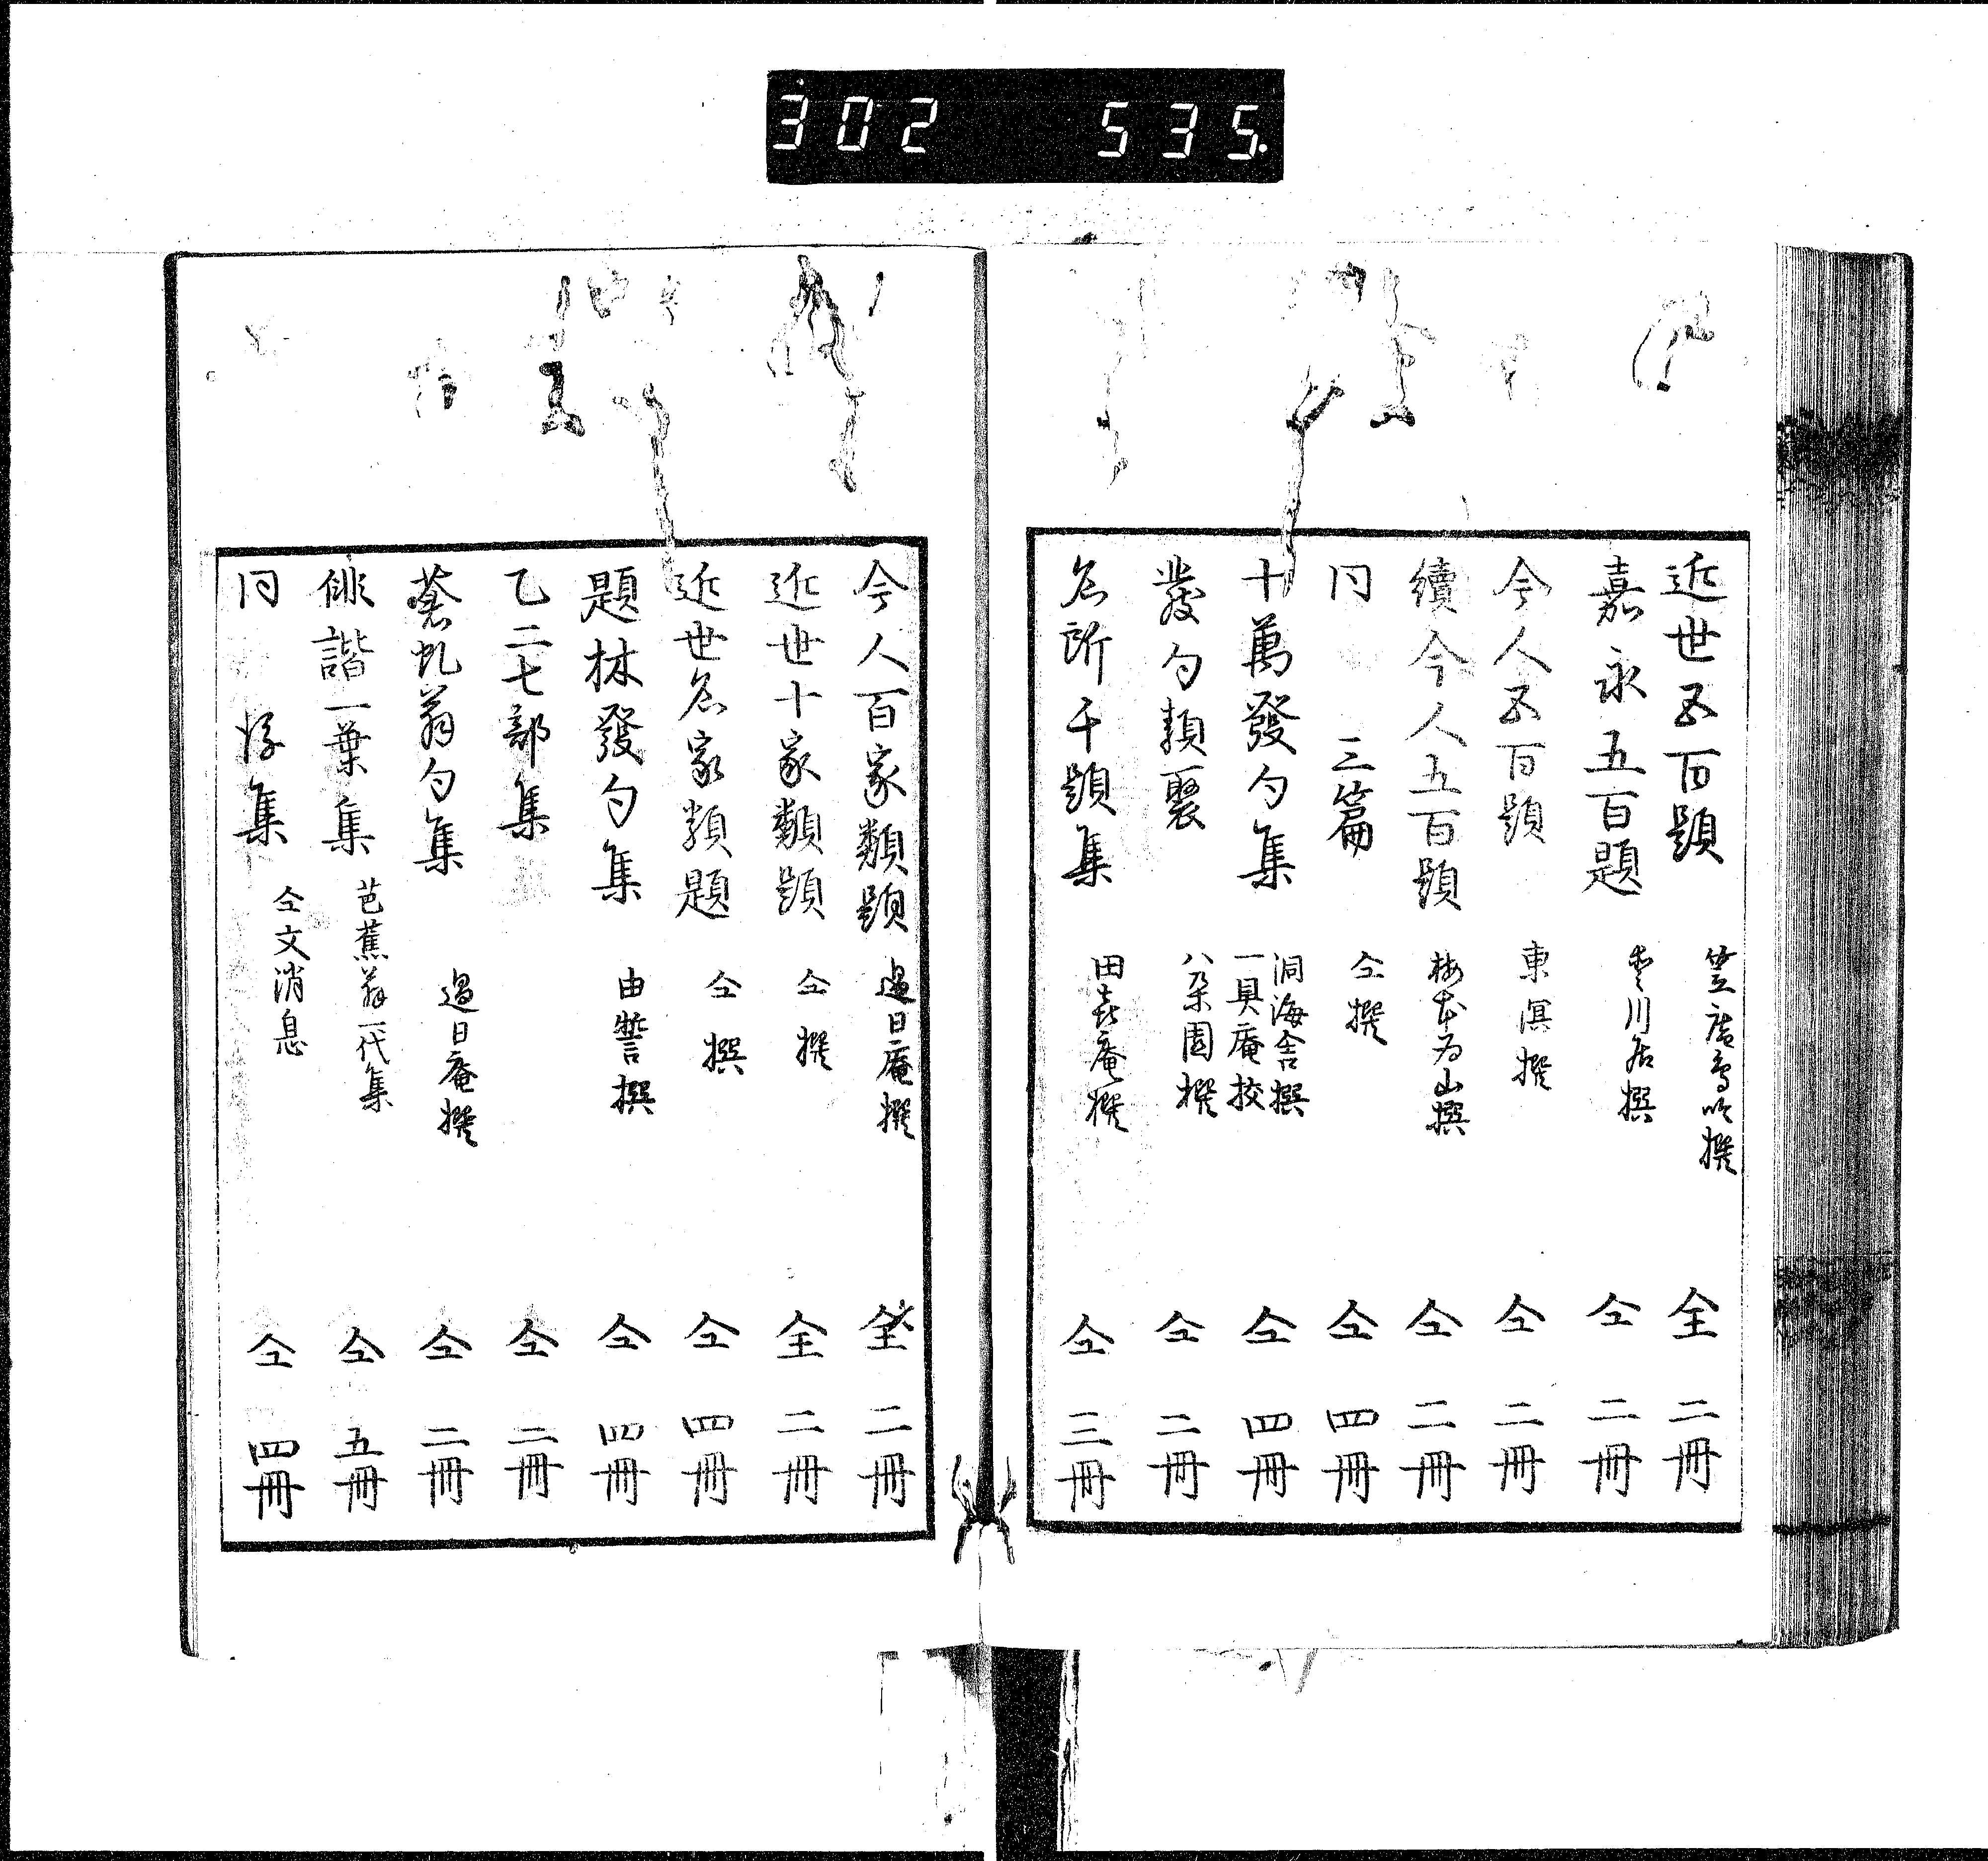 302 535.
近世五百題 笠庵烏吟撰 全 二冊
嘉永五百題 川居撰 仝 二冊
今人五百題 東溟撰 仝 二冊
續今人五百題 梅本為山撰 仝 二冊
同 三篇 仝撰 仝 四冊
十萬發句集 洞海舎撰 一具庵挍 仝 四冊
發句類聚 八朶園撰 仝 二冊
名所千題集 田喜庵撰 仝 三冊
今人百家類題 過日庵撰 全 二冊
近世十家類題 仝撰 全 二冊
近世名家類題 仝撰 仝 四冊
題林發句集 由誓撰 仝 四冊
乙二七部集 仝 二冊
蒼虬翁句集 過日庵撰 仝 二冊
俳諧一葉集 芭蕉翁一代集 仝 五冊
同 後集 仝文消息 仝 四冊